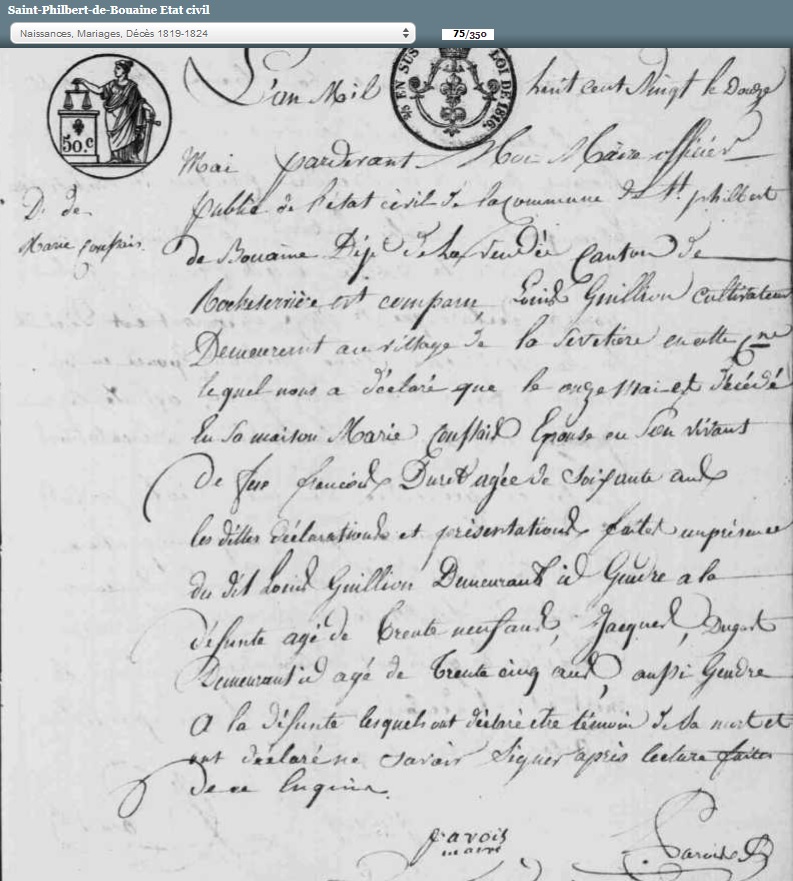 Saint-Philbert-de-Bouaine Etat civil
Naissances, Mariages, Décès 1819-1824
75/350
EN SUS LOI DE 1816.
50 c
L'an Mil huit cent Vingt le Douze
Mai pardevant Moi Maire officier
publié de l'état civil de la commune de St. philbert
D. de
Marie
de Bouaine Dépt de la vendée Canton de
Rocheservière est comparu Louis Guillion cultivateur
Demeurent au village de la en cette Cne
lequel nous a déclaré que le onze Mai est décédé
En sa maison Marie Epouse en son vivant
De feu francois Duret agée de soixante ans
les dittes déclarations et présentations faites en présence
du dit Louis Guillion Demeurant id Gendre a la
défunte agé de trente neuf ans, Jacques, Dugast
Demeurant id agé de trente cinq ans, aussi Gendre
A la défunte lesquels ont déclaré etre témoin de sa mort et
ont déclaré ne savoir signer après lecture faites
De ce
Savois
maire